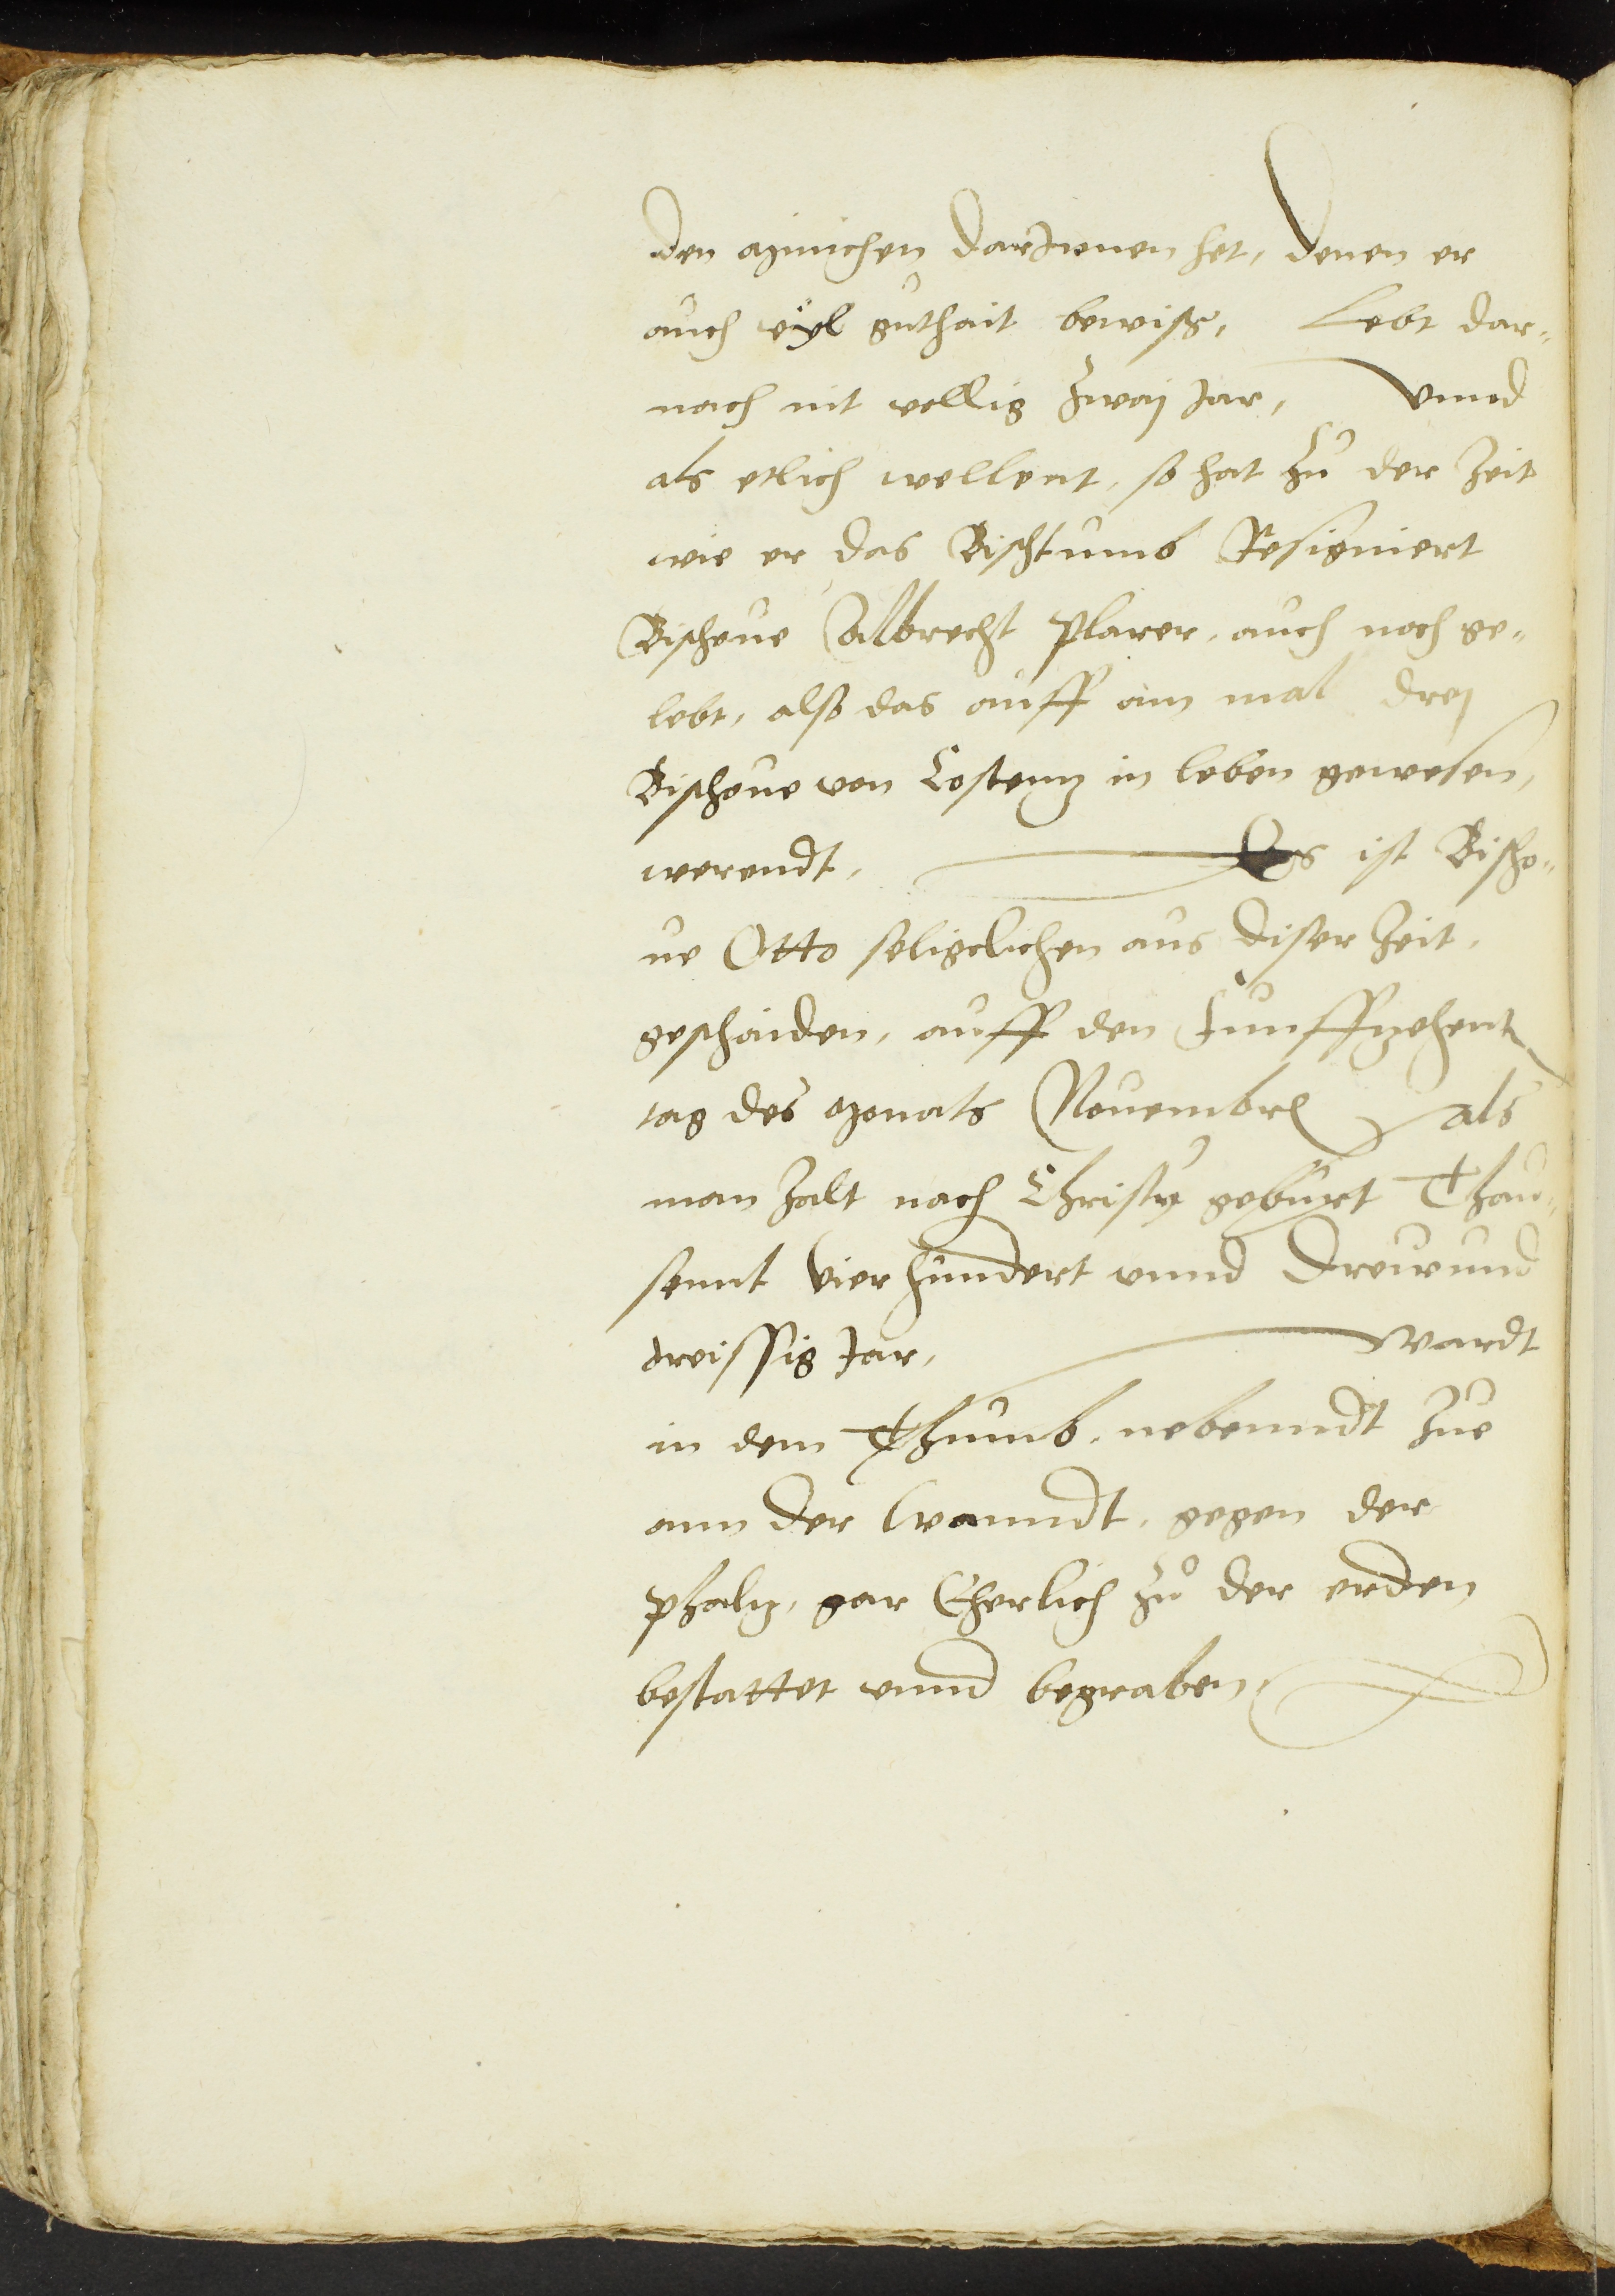 den münchen darJnnen het, denen er
auch vyl guthait bewiß, Lebt dar-
nach nit vellig zwaj Jar, Vnnd
als etlich wellent, so hat zu der Zeit
wie er das Bischtumb Resigniert
Bischoue Albrecht Plarer, auch noch ge-
lebt, also das auff ain mal drej
Bischoue von Costennz in leben gewesen,
werendt, Es ist Bischo-
ue Otto seligclichen aus diser Zeit,
geschaiden, auff den Funffzehent
tag des monats Nouembris als
man Zalt nach Christy geburt Thau-
sennt vier hundert vnnd Dreuund
dreissig Jar, Wardt
in dem Thumb, nebenndt Zue
ann der Wanndt, gegen der
Phaltz, gar Eherlich zů der erden
bestattet vnnd begraben